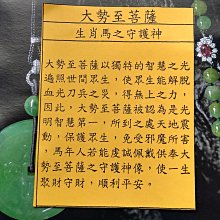 大勢至菩薩
生肖馬之守護神
大勢至菩薩以獨特的智慧之光
遍照世間眾生，使眾生能解脫
血光刀兵之災，得無上之力，
因此，大勢至菩薩被認為是光
明智慧第一，所到之處天地震
動，保護眾生，免受邪魔所害
。馬年人若能虔誠佩戴供奉大
勢至菩薩之守護神像，使一生
聚財守財，順利平安。